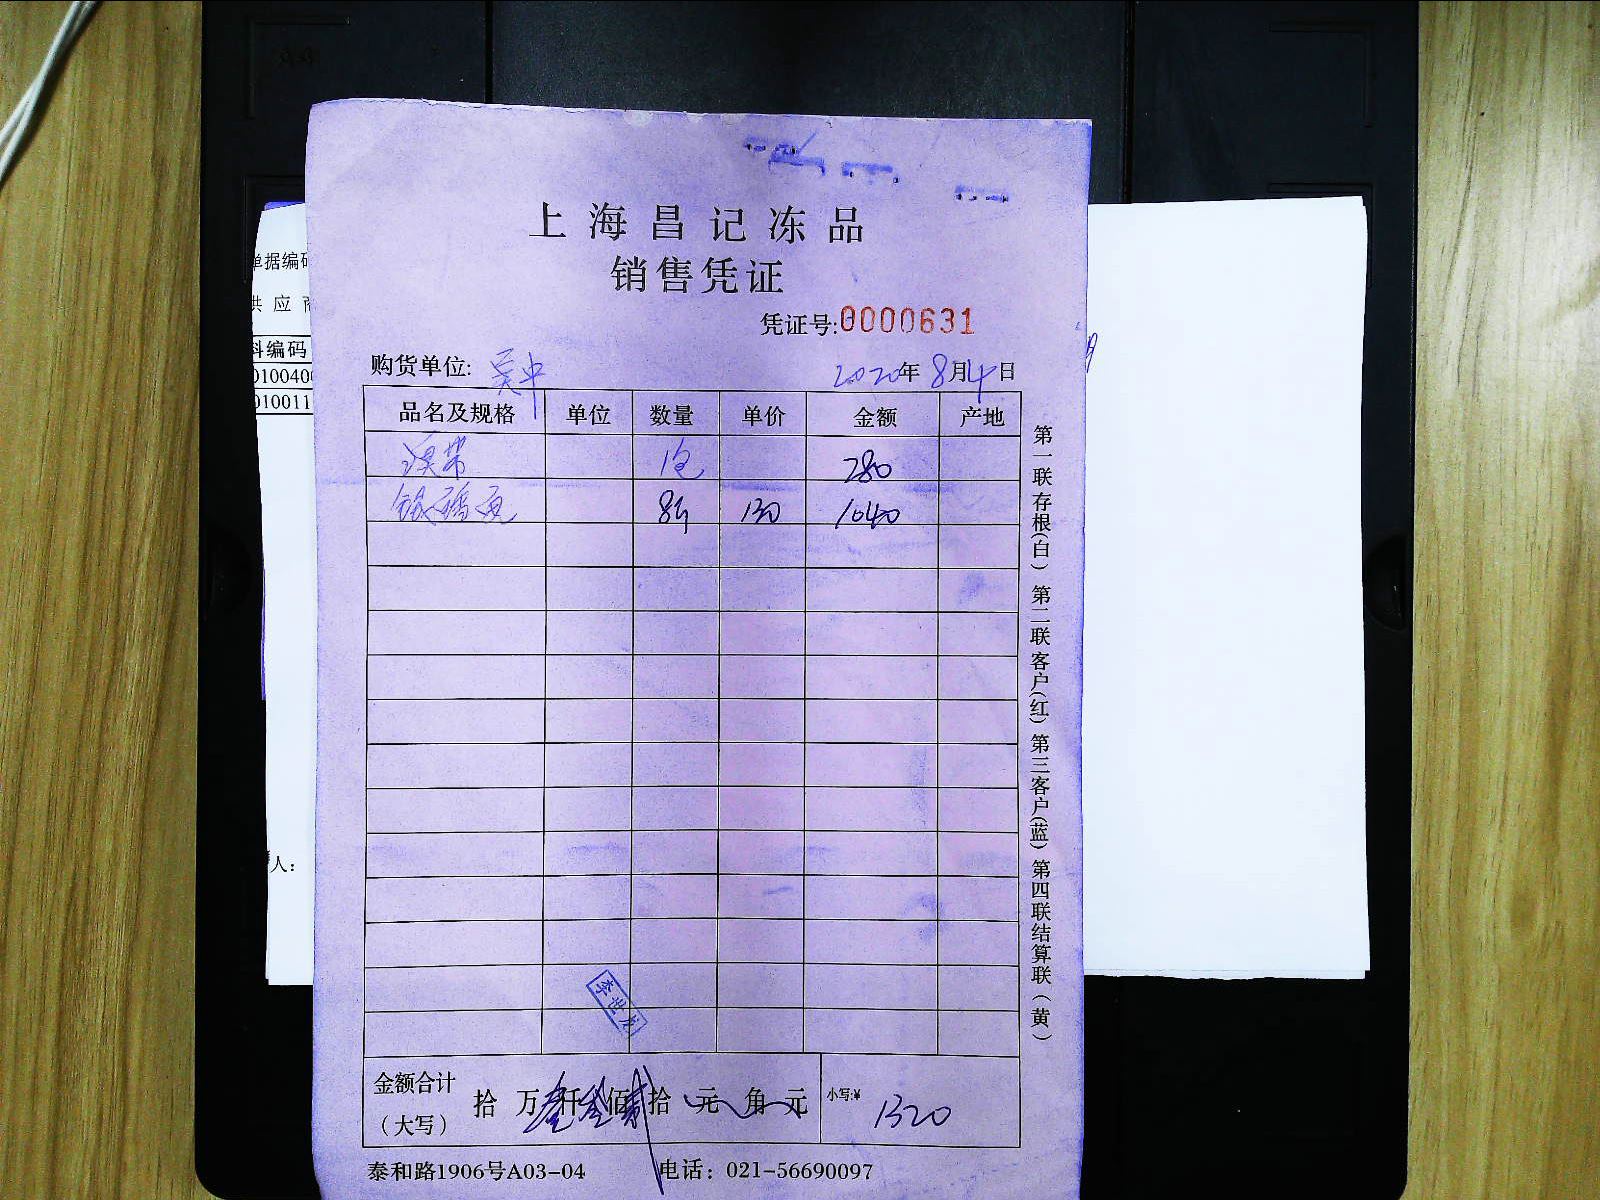 上海昌记冻品
销售凭证
凭证号:0000631
购货单位: 吴中 2020年8月4日
品名及规格 单位 数量 单价 金额 产地
汉带 1包 280
银鳕鱼 8斤 130 1040
李世龙
金额合计(大写) 拾 万 壹仟 叁佰 贰拾 元 角 元 小写:¥ 1320
泰和路1906号A03-04 电话：021-56690097
第一联存根(白) 第二联客户(红) 第三客户(蓝) 第四联结算联(黄)
单据编码
供应商
料编码
0100400
010011
人:
月